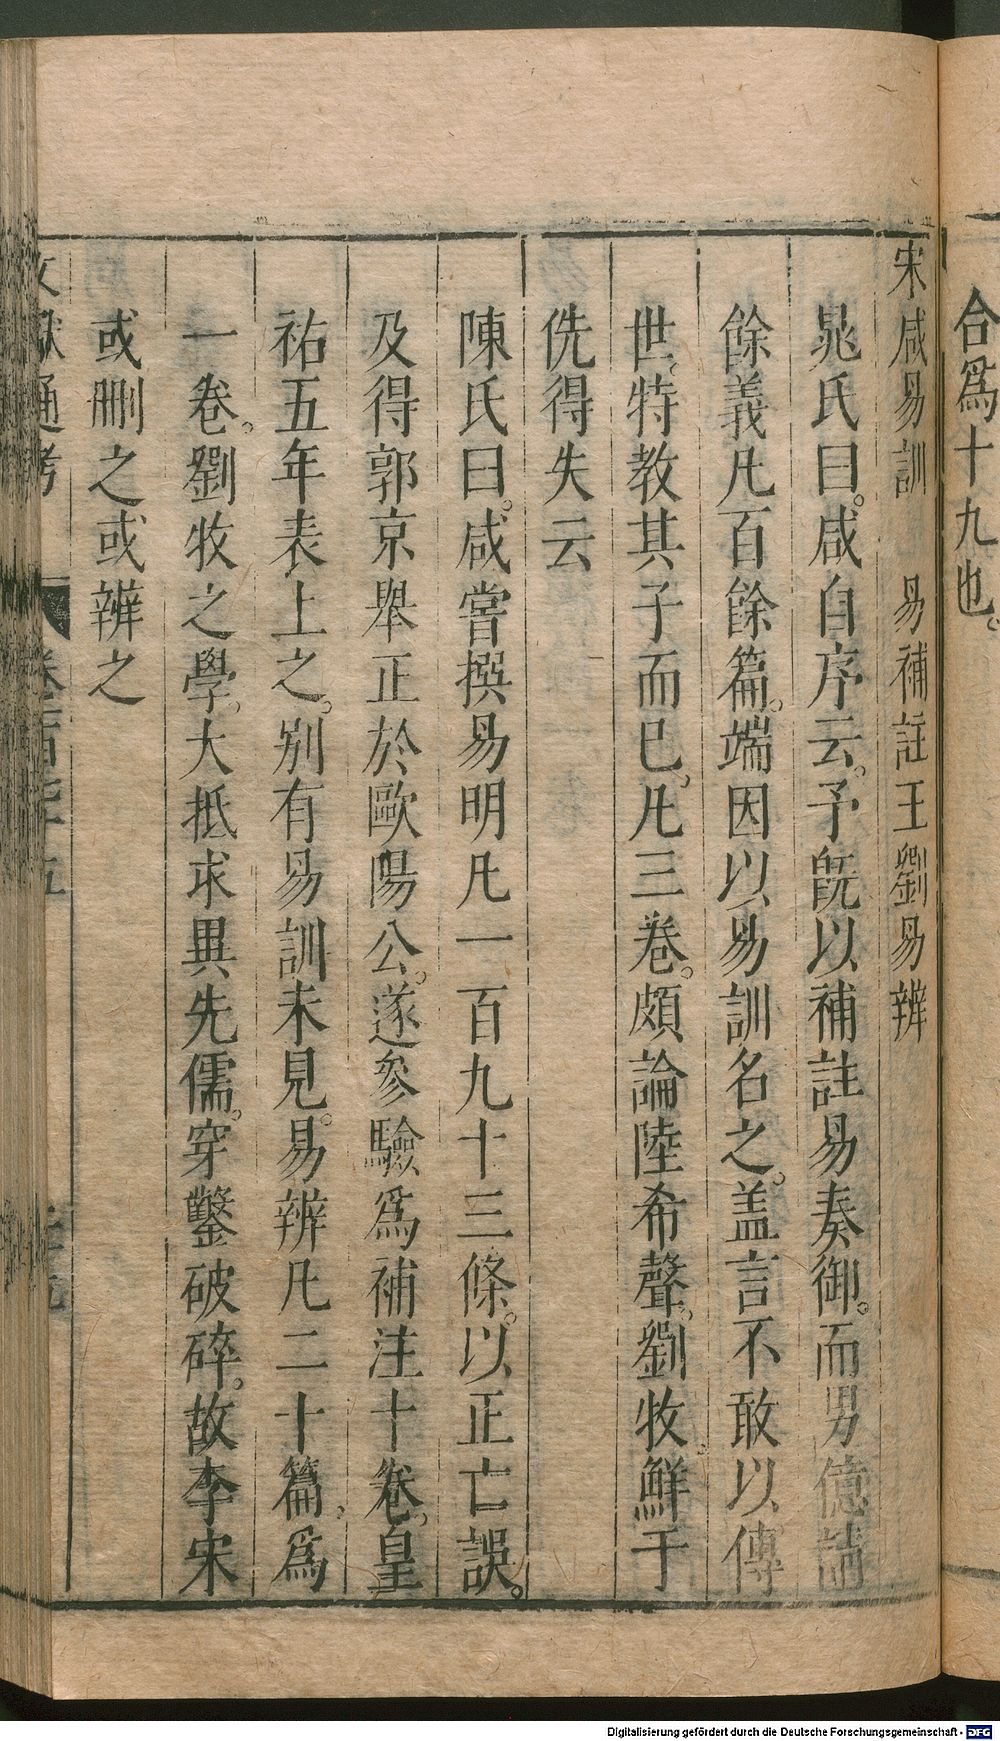 合爲十九也。
宋咸易訓　易補註王劉易辨
晁氏曰。咸自序云。予旣以補註易奏御。而男億請
餘義凡百餘篇。端因以易訓名之。盖言不敢以傳
世。特教其子而已。凡三卷。頗論陸希聲。劉牧。鮮于
侁得失云
陳氏曰。咸嘗撰易明凡一百九十三條。以正亡誤。
及得郭京舉正於歐陽公。遂參驗爲補注十卷。皇
祐五年表上之。別有易訓未見。易辨凡二十篇。爲
一卷。劉牧之學。大抵求異先儒。穿鑿破碎。故李宋
或刪之或辨之
文獻通考
Digitalisierung gefördert durch die Deutsche Forschungsgemeinschaft - DFG